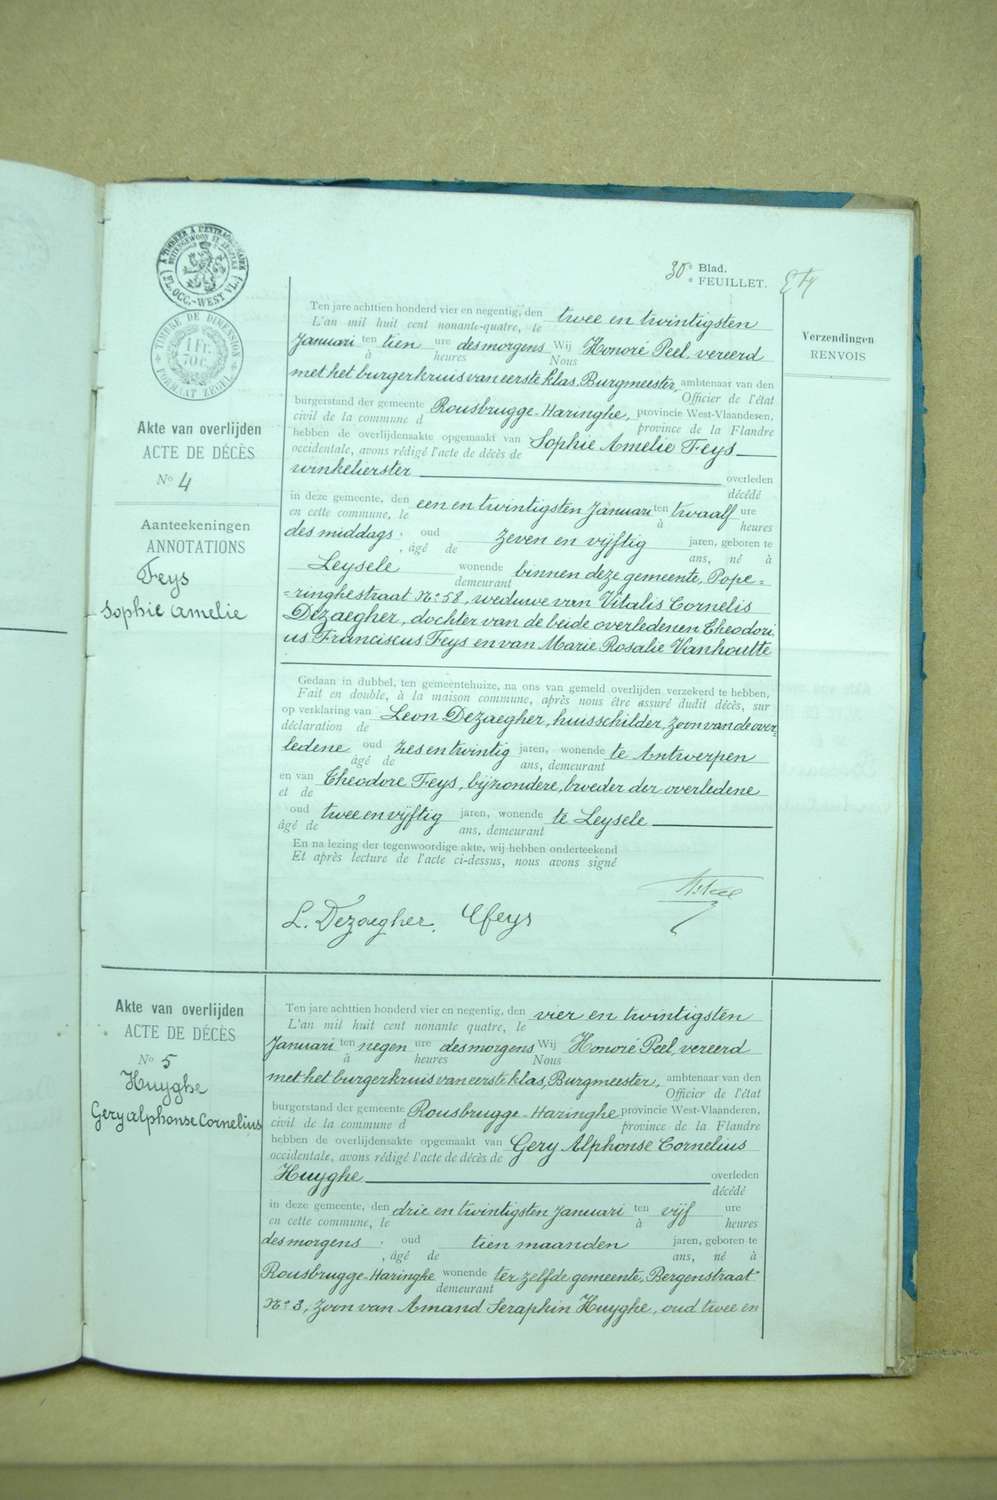 À TIMBRER À L'EXTRAORDINAIRE
BUITENGEWOON TE ZEGELEN
(FL. OCC.-WEST VL.)
TIMBRE DE DIMENSION
1 FR.
70 C.
FORMAAT ZEGEL
3e Blad.
" FEUILLET.
Verzendingen
RENVOIS
Akte van overlijden
ACTE DE DÉCÈS
No 4
Aanteekeningen
ANNOTATIONS
Feys
Sophie Amelie
Ten jare achttien honderd vier en negentig, den twee en twintigsten
L'an mil huit cent nonante-quatre, le
Januari ten tien ure desmorgens Wij Honoré Peel, vereerd
à heures Nous
met het burgerkruis van eerste klas, Burgmeester, ambtenaar van den
Officier de l'état
burgerstand der gemeente Rousbrugge-Haringhe, provincie West-Vlaanderen,
civil de la commune d province de la Flandre
hebben de overlijdensakte opgemaakt van Sophie Amelie Feys
occidentale, avons rédigé l'acte de décès de
winkelierster overleden
décédé
in deze gemeente, den een en twintigsten Januari ten twaalf ure
en cette commune, le à heures
des middags, oud zeven en vijftig jaren, geboren te
, âgé de ans, né à
Leysele wonende binnen deze gemeente, Pope=
demeurant
=ringhestraat No 58, weduwe van Vitalis Cornelis
Dezaegher, dochter van de beide overledenen Theodori
us Franciscus Feys en van Marie Rosalie Vanhoutte
Gedaan in dubbel, ten gemeentehuize, na ons van gemeld overlijden verzekerd te hebben,
Fait en double, à la maison commune, après nous être assuré dudit décès, sur
op verklaring van Leon Dezaegher, huisschilder, zoon van de over-
déclaration de
ledene oud zes en twintig jaren, wonende te Antwerpen
âgé de ans, demeurant
en van Theodore Feys, bijzondere, broeder der overledene
et de
oud twee en vijftig jaren, wonende te Leysele
âgé de ans, demeurant
En na lezing der tegenwoordige akte, wij hebben onderteekend
Et après lecture de l'acte ci-dessus, nous avons signé
L. Dezaegher. Feys
Akte van overlijden
ACTE DE DÉCÈS
No 5
Huyghe
Gery Alphonse Cornelius
Ten jare achttien honderd vier en negentig, den vier en twintigsten
L'an mil huit cent nonante quatre, le
Januari ten negen ure desmorgens Wij Honoré Peel, vereerd
à heures Nous
met het burgerkruis van eerste klas, Burgmeester, ambtenaar van den
Officier de l'état
burgerstand der gemeente Rousbrugge-Haringhe provincie West-Vlaanderen,
civil de la commune d province de la Flandre
hebben de overlijdensakte opgemaakt van Gery Alphonse Cornelius
occidentale, avons rédigé l'acte de décès de
Huyghe overleden
décédé
in deze gemeente, den drie en twintigsten Januari ten vijf ure
en cette commune, le à heures
desmorgens, oud tien maanden jaren, geboren te
, âgé de ans, né à
Rousbrugge-Haringhe wonende ter zelfde gemeente, Bergenstraat
demeurant
No 3, zoon van Amand Seraphin Huyghe, oud twee en